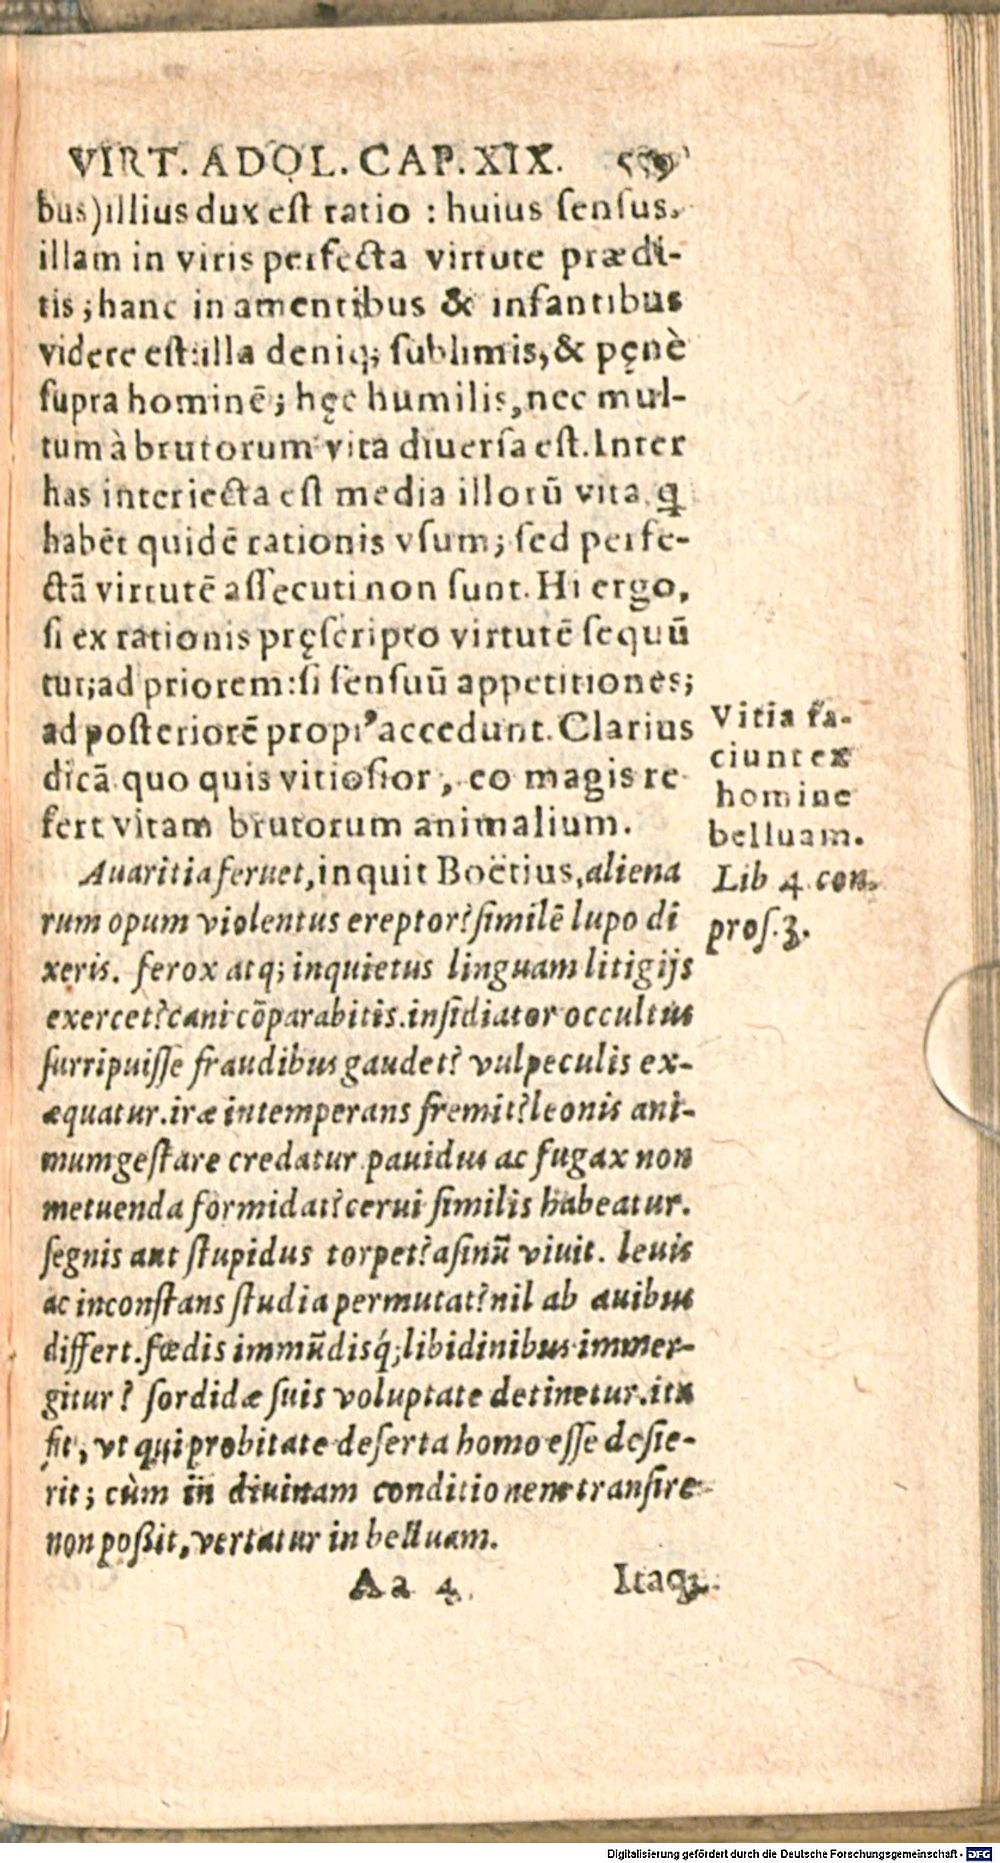 VIRT. ADOL. CAP. XIX. 559
bus) illius dux est ratio : huius sensus.
illam in viris perfecta virtute prædi-
tis ; hanc in amentibus & infantibus
videre est: illa deniq; sublimis, & pęnè
supra hominē ; hęc humilis, nec mul-
tum à brutorum vita diuersa est. Inter
has interiecta est media illorū vita, q̃
habēt quidē rationis vsum ; sed perfe-
ctā virtutē assecuti non sunt. Hi ergo,
si ex rationis pręscripto virtutē sequū
tur; ad priorem: si sensuū appetitiones;
ad posteriorē propi⁹ accedunt. Clarius
dicā quo quis vitiosior, eo magis re
fert vitam brutorum animalium.
Auaritia feruet, inquit Boëtius, aliena
rum opum violentus ereptor? similē lupo di
xeris. ferox atq; inquietus linguam litigijs
exercet? cani cōparabitis. insidiator occultus
surripuisse fraudibus gaudet? vulpeculis ex-
æquatur. iræ intemperans fremit? leonis ani-
mum gestare credatur. pauidus ac fugax non
metuenda formidat? cerui similis habeatur.
segnis aut stupidus torpet? asinū viuit. leuis
ac inconstans studia permutat? nil ab auibus
differt. fœdis immūdisq́; libidinibus immer-
gitur? sordidæ suis voluptate detinetur. ita
fit, vt qui probitate deserta homo esse desie-
rit ; cùm in diuinam conditionem transire
non poßit, vertatur in belluam.
Aa 4. Itaq;
Vitia fa-
ciunt ex
homine
belluam.
Lib 4. con.
pros. 3.
Digitalisierung gefördert durch die Deutsche Forschungsgemeinschaft - DFG